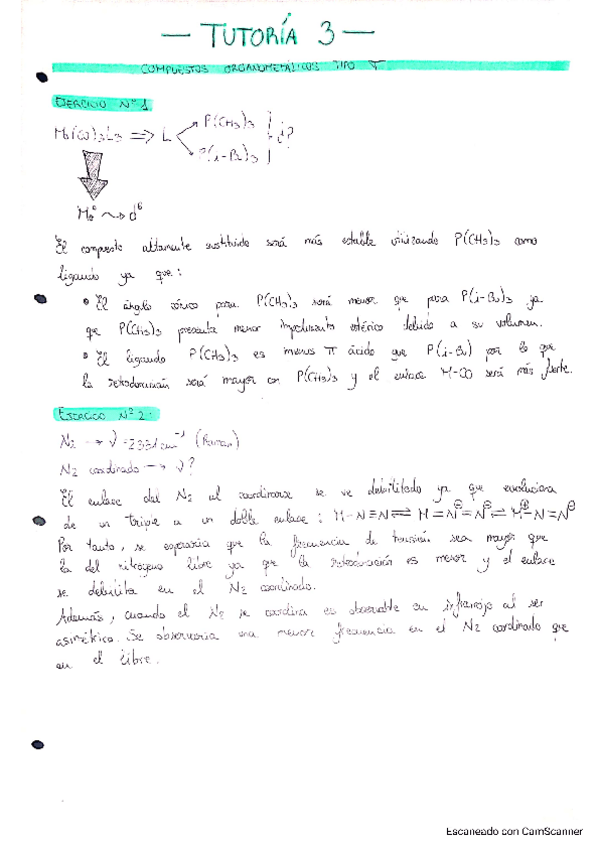 — TUTORÍA 3 —
COMPUESTOS ORGANOMETÁLICOS TIPO π
EJERCICIO Nº 1
Mo(CO)3L3 ⟹ L P(CH3)3 ¿?
P(i-Bu)3
Mo⁰ ⤳ d⁶
El compuesto altamente sustituido será más estable utilizando P(CH3)3 como
ligando ya que:
• El ángulo cónico para P(CH3)3 será menor que para P(i-Bu)3 ya
que P(CH3)3 presenta menor impedimento estérico debido a su volumen.
• El ligando P(CH3)3 es menos π ácido que P(i-Bu) por lo que
la retrodonación será mayor con P(CH3)3 y el enlace M-CO será más fuerte.
EJERCICIO Nº 2:
N2 → ν = 2331 cm⁻¹ (Raman)
N2 coordinado → ν?
El enlace del N2 al coordinarse se ve debilitado ya que evoluciona
de un triple a un doble enlace: M-N≡N ⇌ M=N⊕=N⊖ ⇌ M⊕-N=N⊖
Por tanto, se esperaría que la frecuencia de tensión sea mayor que
la del nitrógeno libre ya que la retrodonación es menor y el enlace
se debilita en el N2 coordinado.
Además, cuando el N2 se coordina es observable en infrarrojo al ser
asimétrico. Se observaría una menor frecuencia en el N2 coordinado que
en el libre.
Escaneado con CamScanner